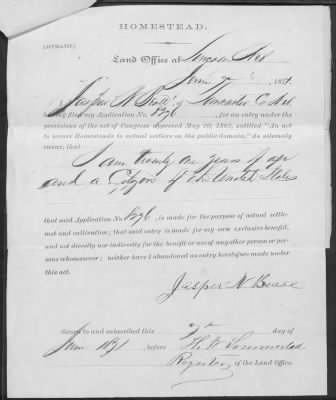 HOMESTEAD.
[AFFIDAVIT.]
Land Office at Lincoln Neb
June 7th 1871.
I, Jasper N of Lancaster Co Neb
having filed my Application No. 8296, for an entry under the
provisions of the act of Congress approved May 20, 1862, entitled "An act
to secure Homesteads to actual settlers on the public domain," do solemnly
swear that
I am twenty one years of age
and a Citizen of the United States
that said Application No. 8296, is made for the purpose of actual settle-
ment and cultivation; that said entry is made for my own exclusive benefit,
and not directly nor indirectly for the benefit or use of any other person or per-
sons whomsoever; neither have I abandoned an entry heretofore made under
this act.
Jasper N
Sworn to and subscribed this 7th day of
June 1871 before
Register of the Land Office.